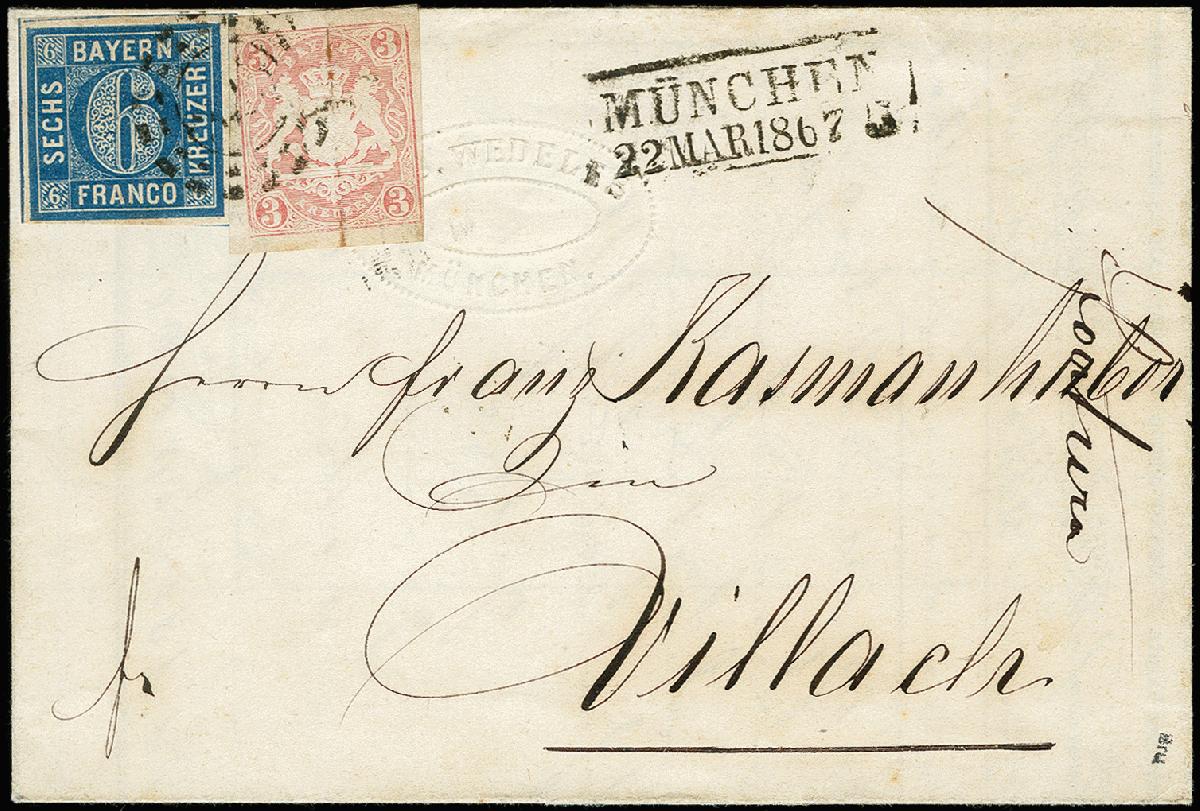 6 BAYERN 6
SECHS
6
KREUZER
6 FRANCO
3 3
3 KREUZER 3
MÜNCHEN
22 MAR 1867
WEDELES
MÜNCHEN.
Herrn Franz Kasmanhuber
in
Villach
fr